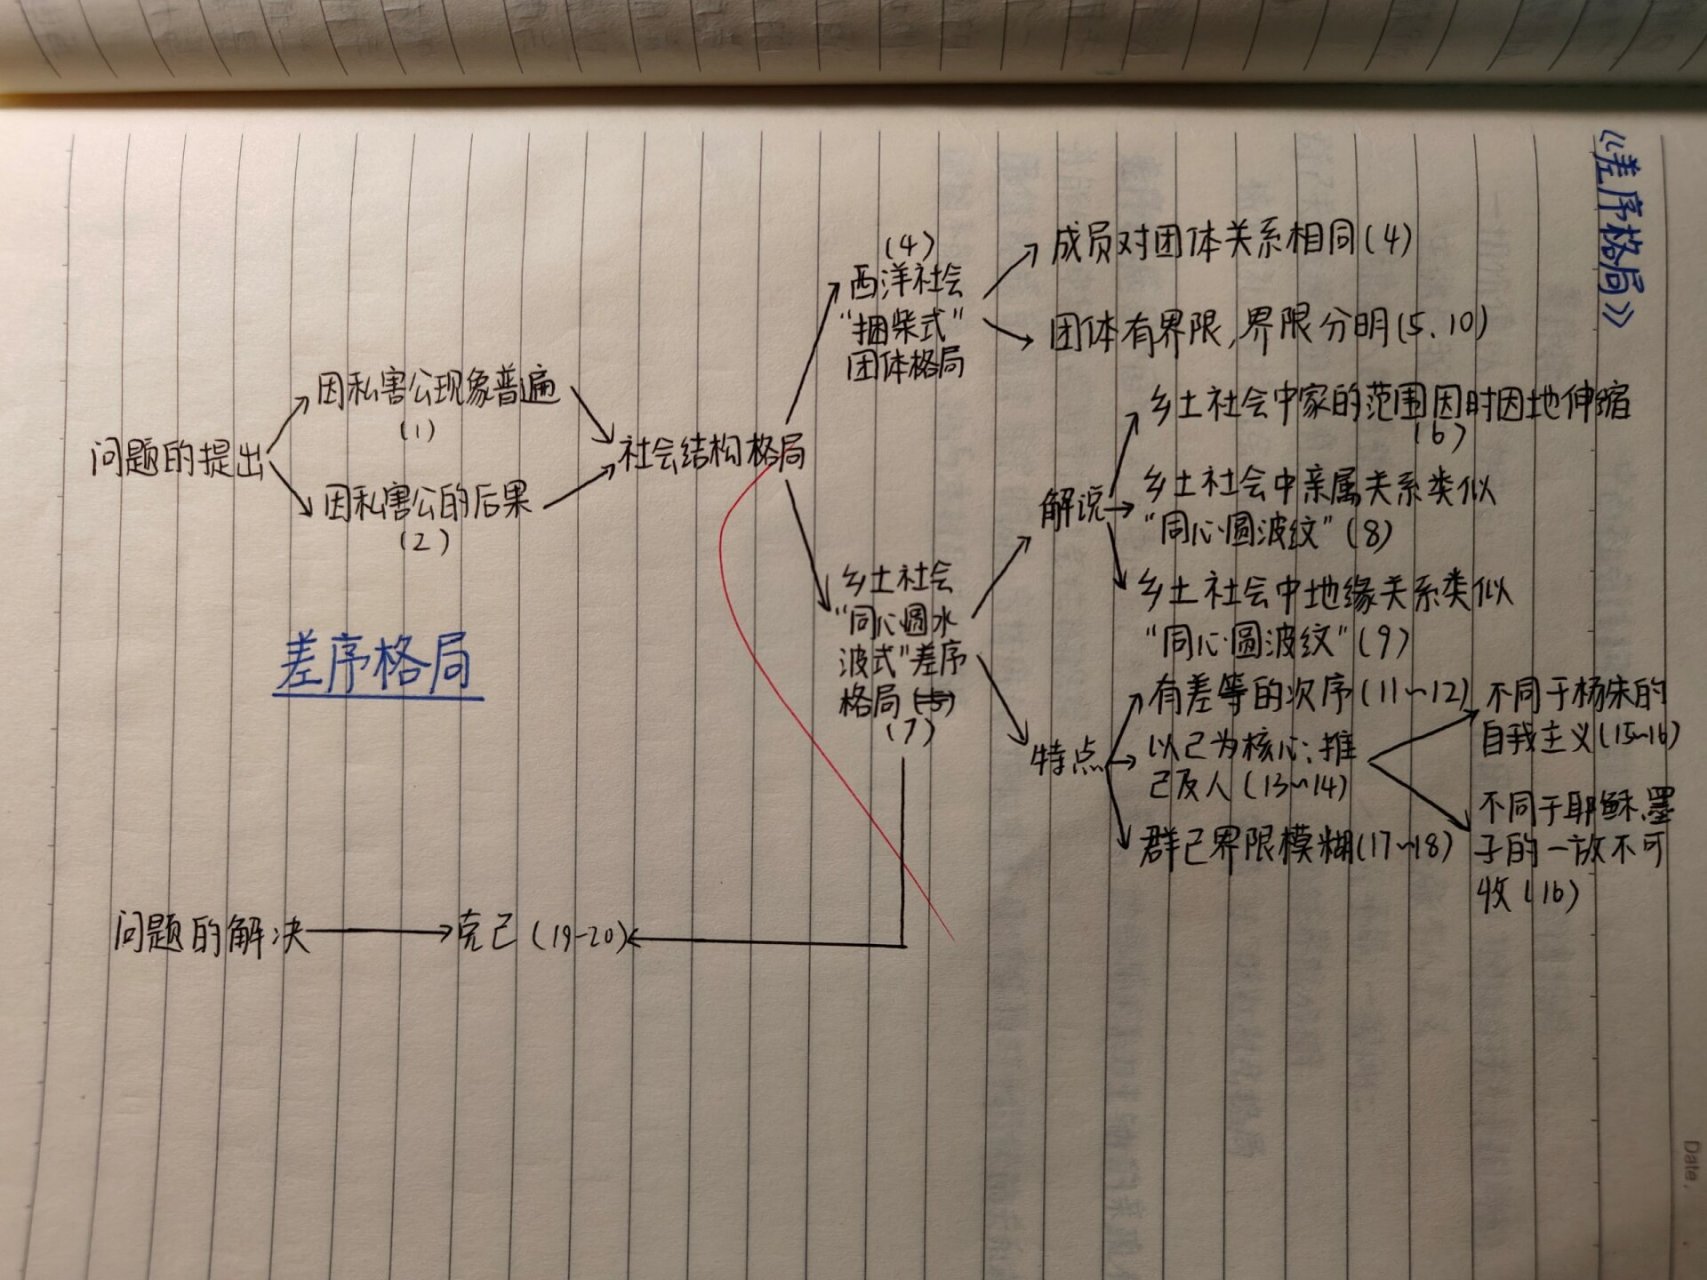 《差序格局》
问题的提出
因私害公现象普遍
(1)
因私害公的后果
(2)
社会结构格局
(4)
西洋社会
“捆柴式”
团体格局
成员对团体关系相同(4)
团体有界限,界限分明(5、10)
乡土社会
“同心圆水
波式”差序
格局
(7)
解说
乡土社会中家的范围因时因地伸缩
(6)
乡土社会中亲属关系类似
“同心圆波纹”(8)
乡土社会中地缘关系类似
“同心圆波纹”(9)
特点
有差等的次序(11~12)
以己为核心,推
己及人(13~14)
不同于杨朱的
自我主义(15~16)
不同于耶稣、墨
子的一放不可
收(16)
群己界限模糊(17~18)
差序格局
问题的解决
克己(19-20)
Date.